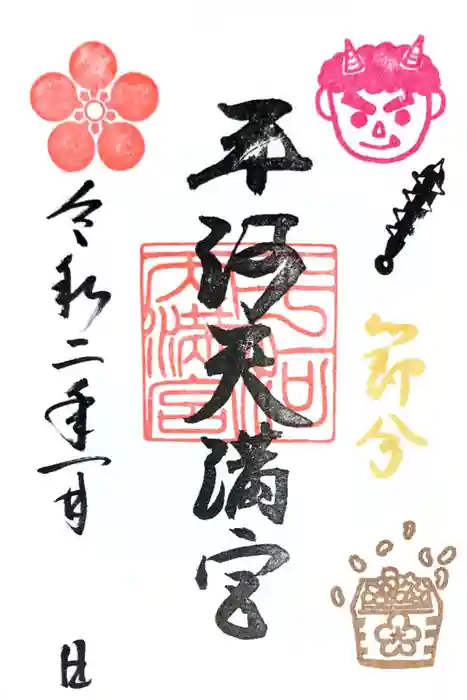 節分
平河天満宮
平河
天満宮
令和二年一月 日